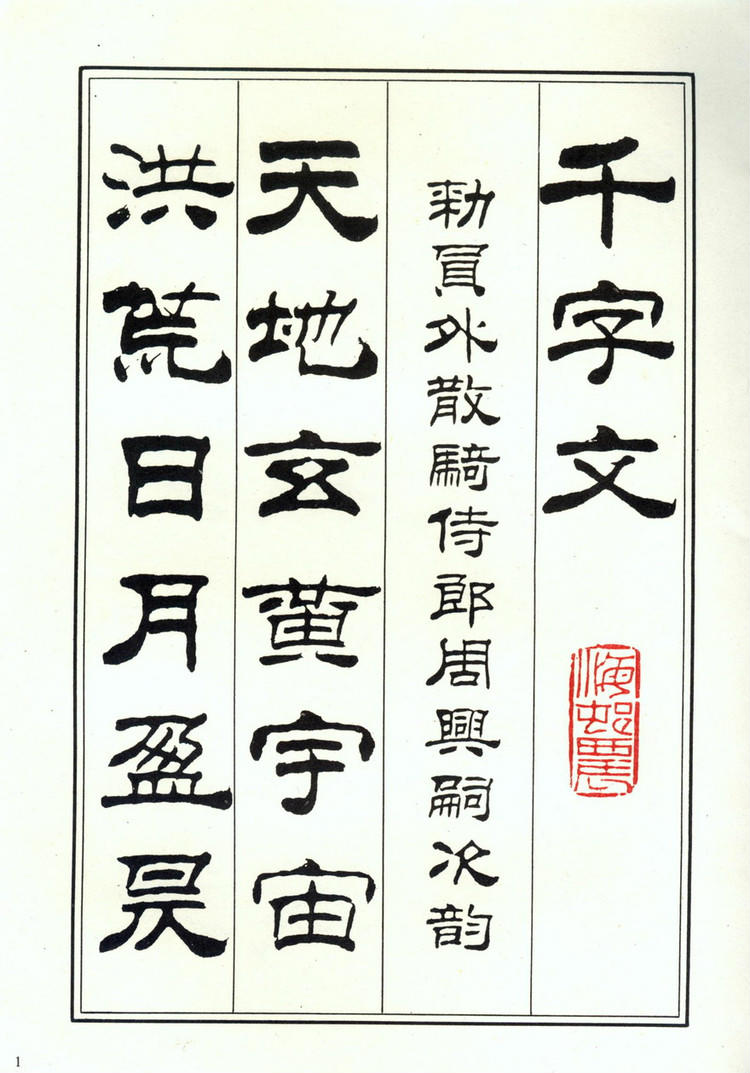 千字文
勑員外散騎侍郎周興嗣次韵
天地玄黄宇宙
洪荒日月盈昃
1